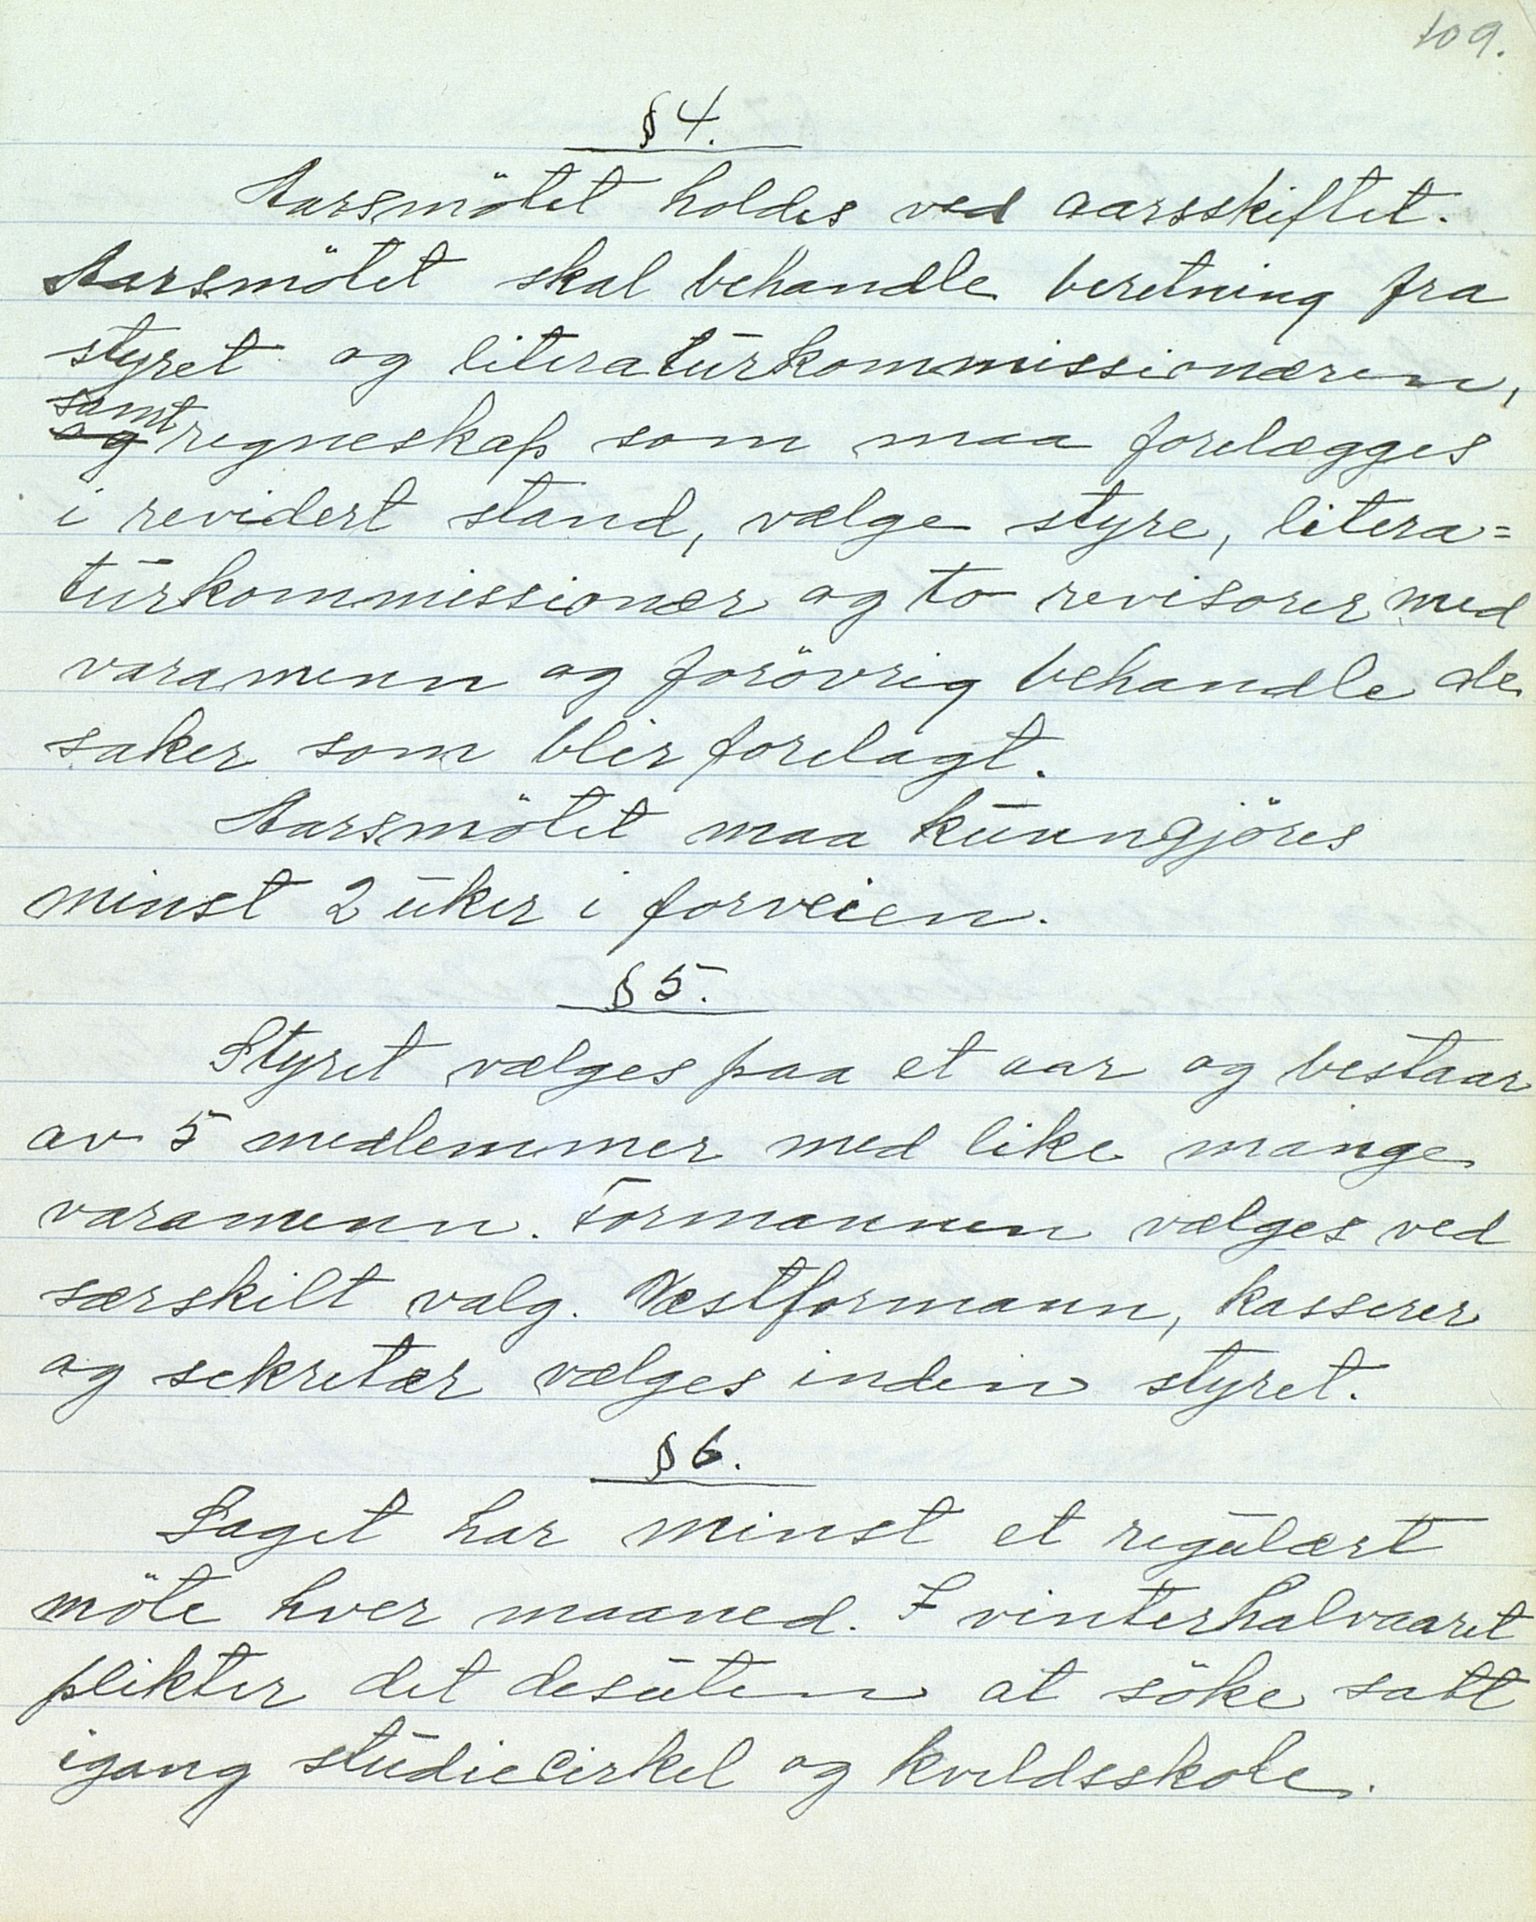 109.
§ 4.
Aarsmötet holdes ved aarsskiftet.
Aarsmötet skal behandle beretning fra
styret og literaturkommissionæren,
samt
og regneskap som maa forelægges
i revidert stand, vælge styre, litera=
turkommissionær og to revisorer med
varamenn og forövrig behandle de
saker som blir forelagt.
Aarsmötet maa kunngjöres
minst 2 uker i forveien.
§ 5.
Styret vælges paa et aar og bestaar
av 5 medlemmer med like mange
varamenn. Formannen vælges ved
særskilt valg. Næstformann, kasserer
og sekretær vælges inden styret.
§ 6.
Laget har minst et regulært
möte hver maaned. I vinterhalvaaret
plikter det desuten at söke satt
igang studiecirkel og kveldsskole.